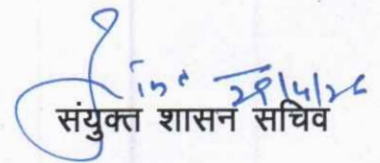 29/4/26
संयुक्त शासन सचिव